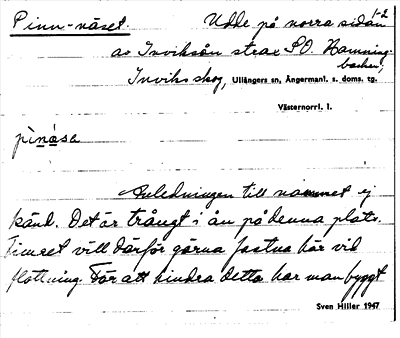 Pinn-näset. Udde på norra sidan 1-2
av Inviksån strax S.O. Hamning-
backen,
Inviks skog, Ullångers sn, Ångermanl. s. doms. tg.
Västernorrl. l.
pìnása
Anledningen till namnet ej
känd. Det är trångt i ån på denna plats.
Timret vill därför gärna fastna här vid
flottning. För att hindra detta har man byggt
Sven Hiller 1947